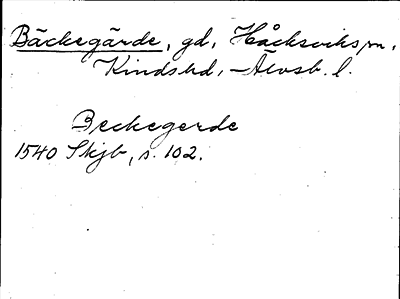 Bäckegärde, gd, Håcksviks sn,
Kinds hd, Älvsb. l.
Beckegerde
1540 Skjb, s. 102.